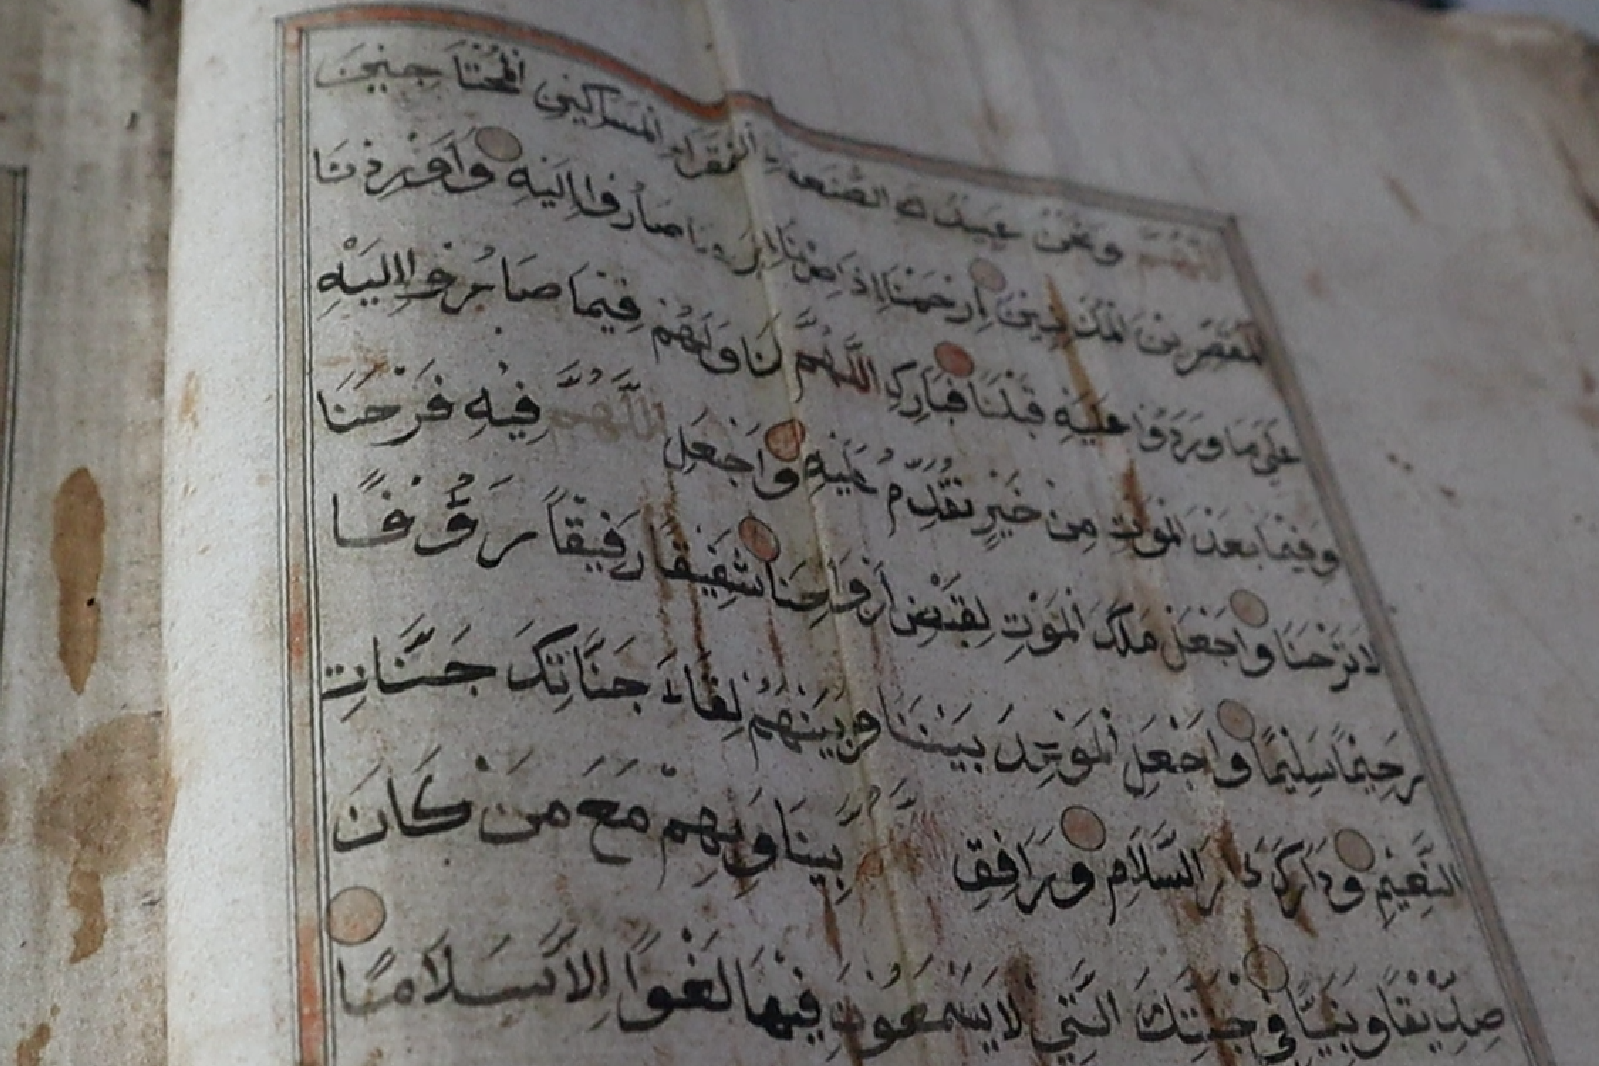 اللَّهُمَّ وَنَحْنُ عَبِيدُكَ الضُّعَفَاءِ الْفُقَرَاءِ الْمَسَاكِينِ الْمُحْتَاجِينَ
الْمُقَصِّرِينَ الْمُذْنِبِينَ اِرْحَمْنَا اِذَا صِرْنَا اِلَى مَا صَارُوا اِلَيْهِ وَاَوْرِدْنَا
عَلَى مَا وَرَدُوا عَلَيْهِ قَبْلَنَا فَبَارِكِ اللَّهُمَّ لَنَا وَلَهُمْ فِيمَا صَارُوا اِلَيْهِ
وَفِيمَا بَعْدَ الْمَوْتِ مِنْ خَيْرٍ نُقَدِّمُ عَلَيْهِ وَاجْعَلِ اللَّهُمَّ فِيهِ فَرَحَنَا
لَا تَرَحَنَا وَاجْعَلْ مَلَكَ الْمَوْتِ لِقَبْضِ اَرْوَاحِنَا شَفِيقًا رَفِيقًا رَؤُفًا
رَحِيمًا سَلِيمًا وَاجْعَلِ الْمَوْعِدَ بَيْنَنَا وَبَيْنَهُمْ لِقَاءَ جَنَّاتِكَ جَنَّاتِ
النَّعِيمِ وَدَارَكَ دَارَ السَّلَامِ وَرَافِقْ بِنَا وَبِهِمْ مَعَ مَنْ كَانَ
صِدِّيقًا وَنَبِيًّا فِي جَنَّتِكَ الَّتِي لَا يَسْمَعُونَ فِيهَا لَغْوًا اِلَّا سَلَامًا